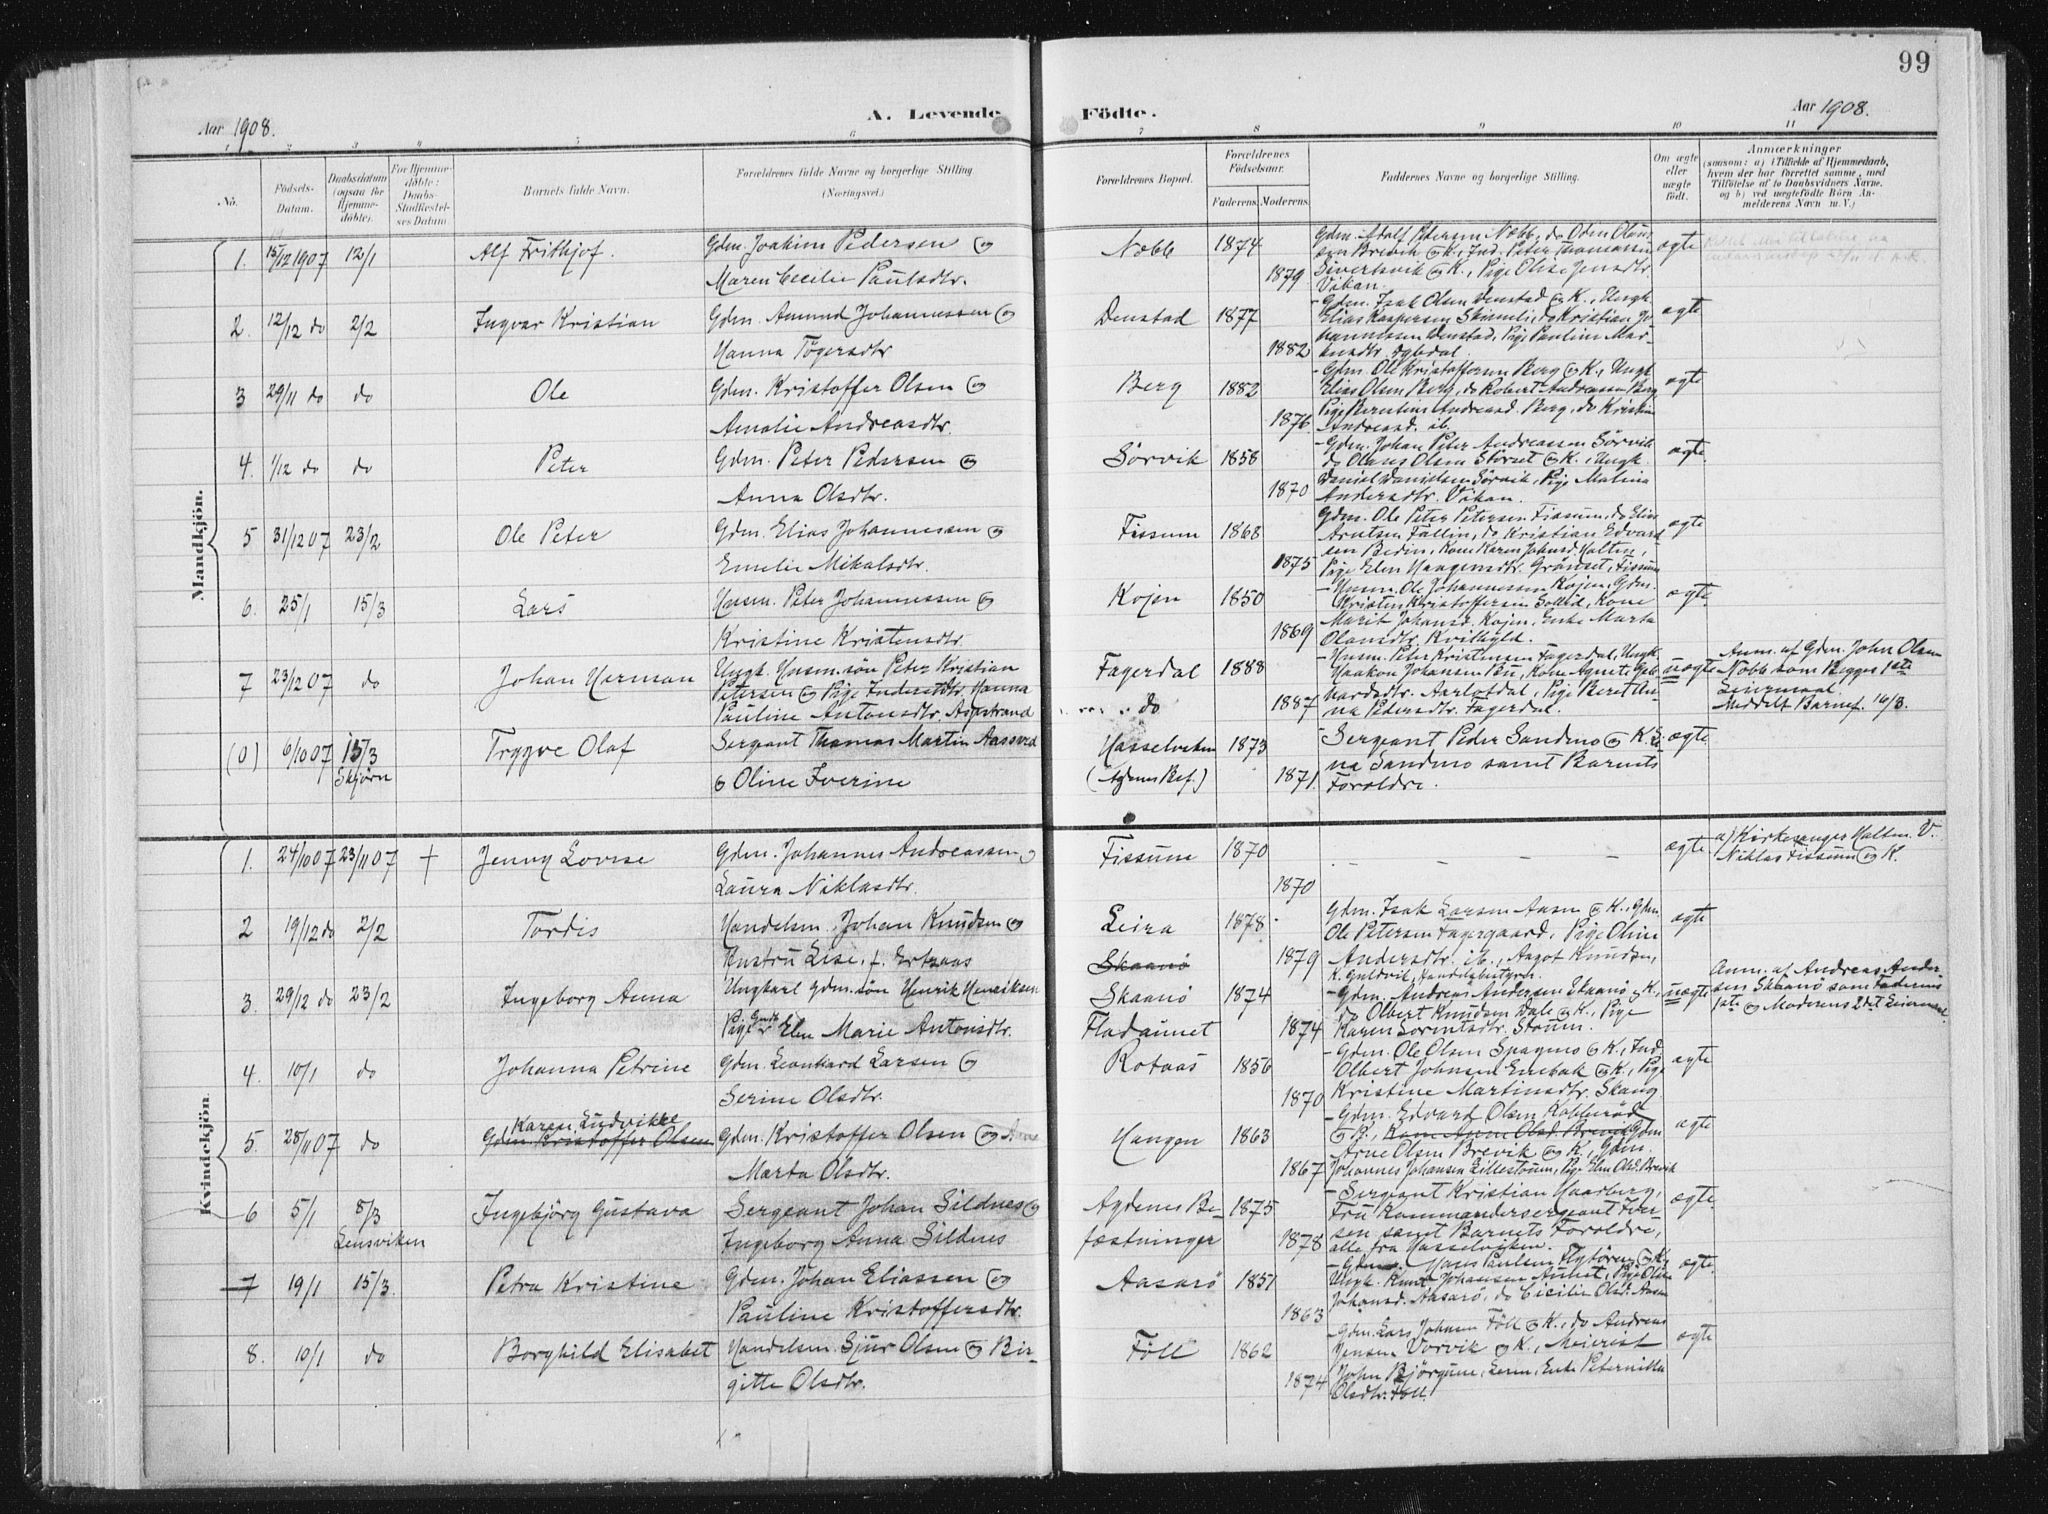 99
Aar 1908.
A. Levende
Födte.
Aar 1908.
1 2 3 4 5 6 7 8 9 10 11
No.
Födsels-Datum.
Daabsdatum (ogsaa for Hjemme-döbte).
For Hjemme-döbte: Daabs Stadfæstel-ses Datum
Barnets fulde Navn.
Forældrenes fulde Navne og borgerlige Stilling (Næringsvei.)
Forældrenes Bopæl.
Forældrenes Födselsaar.
Faderens. Moderens.
Faddernes Navne og borgerlige Stilling.
Om ægte eller uægte födt.
Anmærkninger
(saasom: a) i Tilfælde af Hjemmedaab, hvem der har forrettet samme, med Tilföielse af to Daabsvidners Navne, og b) ved uægtefödte Börn An-melderens Navn m. V.)
Mandkjön.
1. 15/12 1907 12/1 Alf Frithjof. Gdm. Joakim Pedersen og
Maren Cecilie Paulsdtr.
Nebb 1874 1879
Gdm. Adolf Pedersen Nebb, do Oden Olaus-
sen Brevik og K., Ind. Peter Thomassen
Sivertsvik og K., Pige Olise Jensdtr.
Vikan.
ægte
2. 12/12 do 2/2 Ingvar Kristian Gdm. Amund Johannessen og
Hanna Tögersdtr
Denstad 1877 1882
Gdm. Isak Olsen Denstad og K., Ungk.
Elias Kaspersen Skimli, do Kristian Jo-
hannessen Denstad, Pige Pauline Mar-
ægte
3 29/11 do do Ole Gdm. Kristoffer Olsen og
Amalie Andreasdtr.
Berg 1882 1876
Gdm. Ole Kristoffersen Berg og K., Ungk.
Elias Olsen Berg, do Robert Andreassen Berg
Pige Berntine Andreasd. Berg, do Kristine
Andreasd. ib.
ægte
4. 1/12 do do Peter Gdm. Peter Pedersen og
Anna Olsdtr.
Sörvik 1858 1870
Gdm. Johan Peter Andreassen Sörvik
do Olaus Olsen Störset og K., Ungk.
Daniel Danielsen Sörvik, Pige Malina
Andersdtr. Vikan.
ægte.
5 31/12 07 23/2 Ole Peter Gdm. Elias Johannessen og
Emelie Mikalsdtr.
Fissum 1868 1875
Gdm. Ole Peter Petersen Fissum, do Elias
Arntsen Fallin, do Kristian Edvard-
sen Bedin, Kone Karen Johnsd. Halten,
Pige Elen Haagensdtr. Grönset, Fissum
ægte
6. 25/1 15/3 Lars Husm. Peter Johannessen og
Kristine Kristensdtr.
Kojen 1850 1869
Husm. Ole Johannessen Kojen, Gdm.
Kristen Kristoffersen Sollid, Kone
Marit Johansd. Kojen, Enke Marta
Olausdtr. Kvithyld.
ægte.
7 23/12 07 do Johan Herman Ungk. Husm. sön Peter Kristian
Petersen og Pige Inderstdtr. Hanna
Pauline Antonsdtr. Agstrand
Fagerdal 1888
do 1887
Husm. Peter Kristensen Fagerdal, Ungk.
Haakon Johansen Bü, Kone Agnete Geb-
hardsdtr. Aarlotdal, Pige Beret An-
na Pedersdtr. Fagerdal.
uægte
Anm. af Gdm. John Olsen
Nebb som Begges 1ste
Leiermaal.
Meddelt Barnef. 16/3.
(0) 6/10 07 15/3 Skjörn Tryggve Olaf Sergeant Thomas Martin Aassved
og Oline Iverine
Hasselviken 1873
(Agdenes Bef.) 1871.
Sergeant Peder Sandmo og K. Le-
na Sandmo samt Barnets
Foreldre.
ægte
Kvindekjön.
1. 24/10 07 23/11 07 † Jenny Lovise Gdm. Johannes Andreassen og
Laura Niklasdtr.
Fissum 1870 1870
– – – – –
ægte
a) Kirkesanger Halten. V.
Niklas Fissum og K.
2 19/12 do 2/2 Tordis Handelsm. Johan Knudsen og
Hustru Lise, f. Ertzaas
Leira 1878. 1879
Skaanö
Gdm. Isak Larsen Aasen og K., Gdm.
Ole Petersen Fagergaard, Pige Oline
Andersdtr. ib., Aagot Knudsen,
K. Guldvik, Handelsbestyrer.
ægte
3. 29/12 do 23/2 Ingeborg Anna Ungkarl Gdm. sön Henrik Henriksen
Pige Gmdtr Elen Marie Antonsdtr.
Skaanö 1874
Fladaunet 1874
Gdm. Andreas Andersen Skaanö og K.,
do Olbert Knudsen Dale og K., Pige
Karen Sorentsdtr. Straum.
uægte
Anm. af Andreas Ander-
sen Skaanö som Faderens
1ste og Moderens 2det Leiermaal.
4. 10/1 do Johanna Petrine Gdm. Leonhard Larsen og
Serine Olsdtr.
Rotaas 1856 1870
Gdm. Ole Olsen Spagmo og K., Ind.
Olbert Johnsen Embak og K., Pige
Kristine Martinsdtr. Skaug
ægte
5. 28/11 07 do Karen Ludvikke
Gdm. Kristoffer Olsen Gdm. Kristoffer Olsen og
Marta Olsdtr.
Hangen 1863 1867
Gdm. Edvard Olsen Kobberöd
og K., Kone Anne Olsd. Brevik, Gdm
Arne Olsen Brevik og K., Gdm.
Johannes Johansen Lillestraum, Pige Elen Olsd. Brevik
ægte
6 5/1 8/3 Lensviken Ingebjörg Gustava Sergeant Johan Sildnes og
Ingeborg Anna Sildnes
Agdenes Be-
fæstninger
1875 1878
Sergeant Kristian Haarberg,
Frü Kommandersergeant Iver-
sen samt Barnets Foreldre,
alle fra Hasselviken.
ægte.
7 19/1 15/3. Petra Kristine Gdm. Johan Eliassen og
Pauline Kristoffersdtr.
Aasarö 1851 1863
Gdm. Hans Paulsen Flytören og K.
Ungk. Knut Johansen Aunet, Pige Olise
Johansd. Aasarö, do Cicilie Olsd. Aasen
ægte.
8. 10/1 do Borghild Elisabet Handelsm. Sjur Olsen og Bir-
gitte Olsdtr.
Föll 1862 1874
Gdm. Lars Johansen Föll og K., do Andreas
Jensen Vorvik og K., Meierist
John Björgum, Leren, Enke Peternilla
Olsdtr. Föll.
ægte